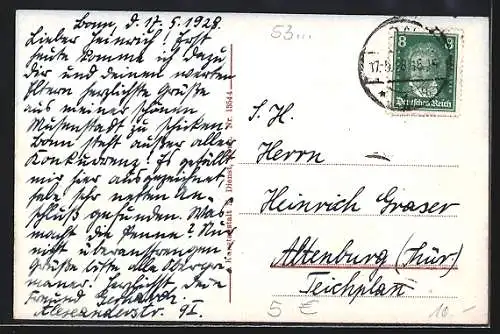 Bonn, d. 17.5.1928
Lieber Heinrich! Erst
heute komme ich dazu
dir und deinen werten
Eltern herzlichste Grüsse
aus meiner schönen
Musenstadt zu schicken.
Bonn steht ausser aller
Konkurrenz! Es gefällt
mir hier ausgezeichnet,
habe sehr netten An-
schluß gefunden. Was
macht die Penne? Nur
nicht überanstrengen
Grüße bitte alle Oberpri-
maner. Herzlichst, dein
Freund
Alexanderstr. 9I.
Nr. 18544
53...
8 8
Deutsches Reich
S. H.
Herrn
Heinrich Graser
Altenburg (Thür.)
Teichplan
5 €
10.-